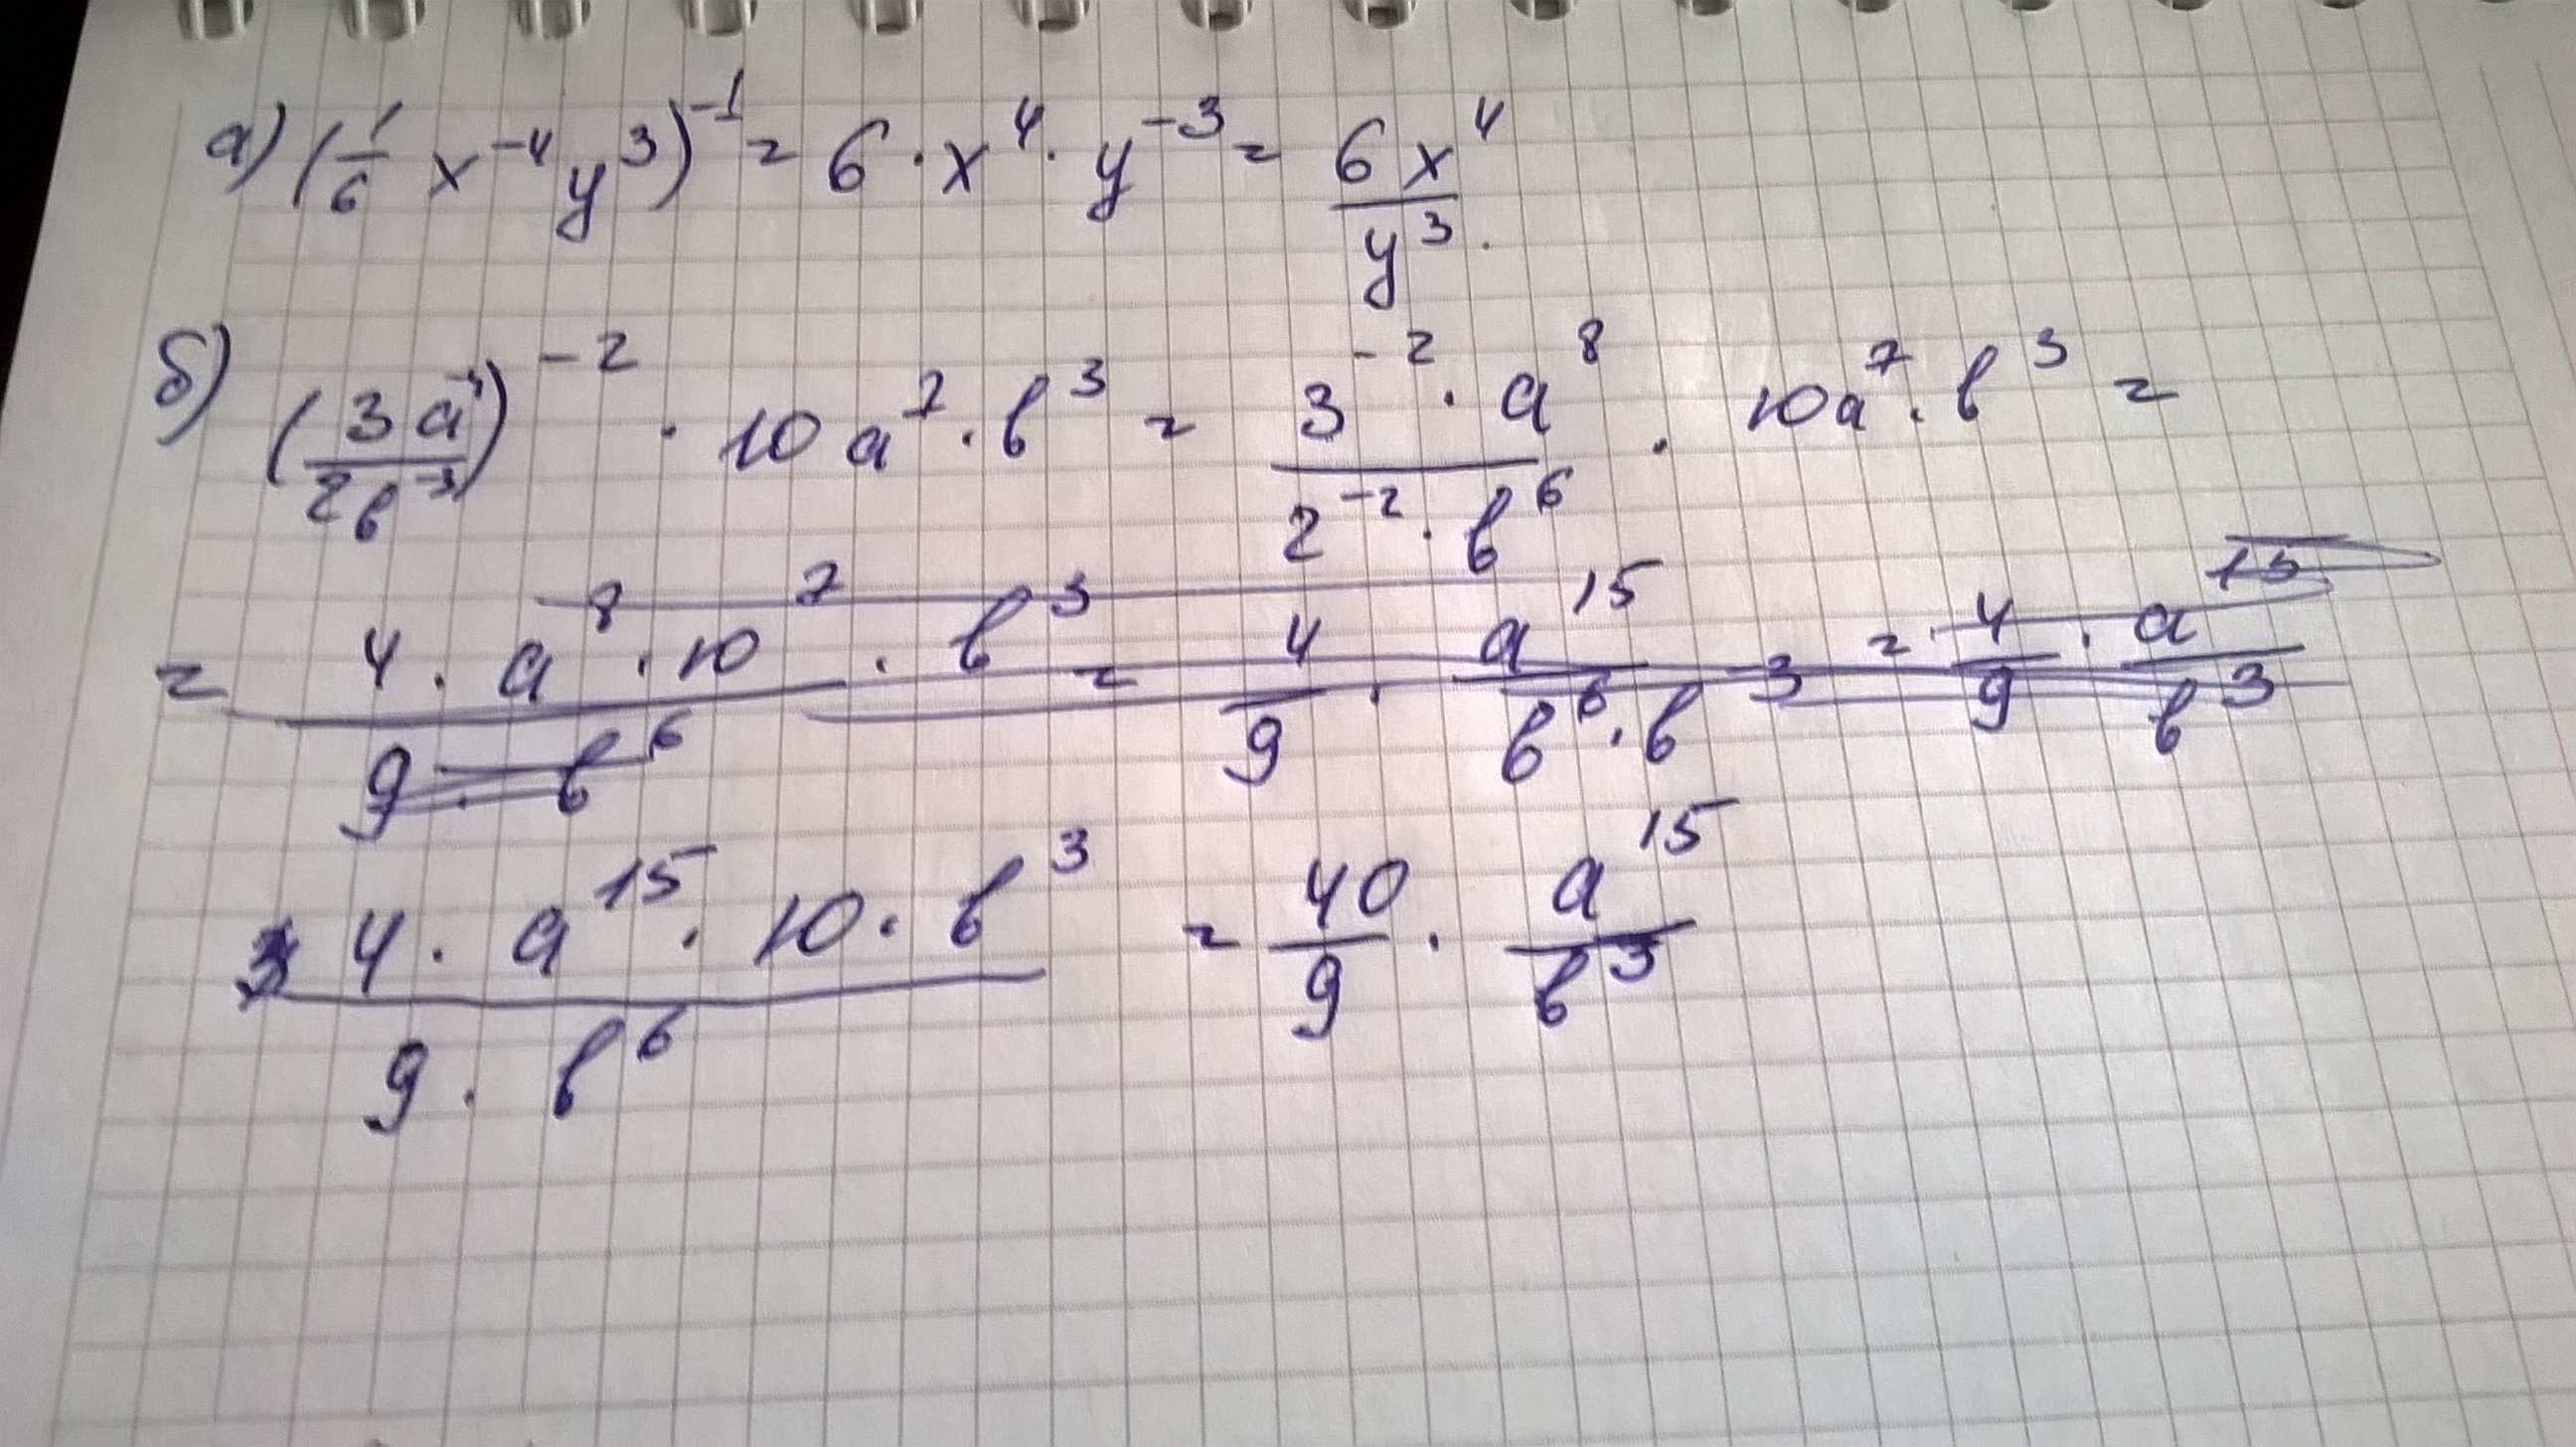 а) (1/6 x⁻⁴ y³)⁻¹ = 6 · x⁴ · y⁻³ = 6x⁴/y³.
б) (3a⁻⁴/2b⁻³)⁻² · 10a⁷ · b³ = 3⁻² · a⁸/2⁻² · b⁶ · 10a⁷ · b³ =
= 4 · a⁸ · 10⁷ · b³/9 · b⁶ = 4/9 · a¹⁵/b⁶ · b⁻³ = 4/9 · a¹⁵/b³
4 · a¹⁵ · 10 · b³/9 · b⁶ = 40/9 · a¹⁵/b³